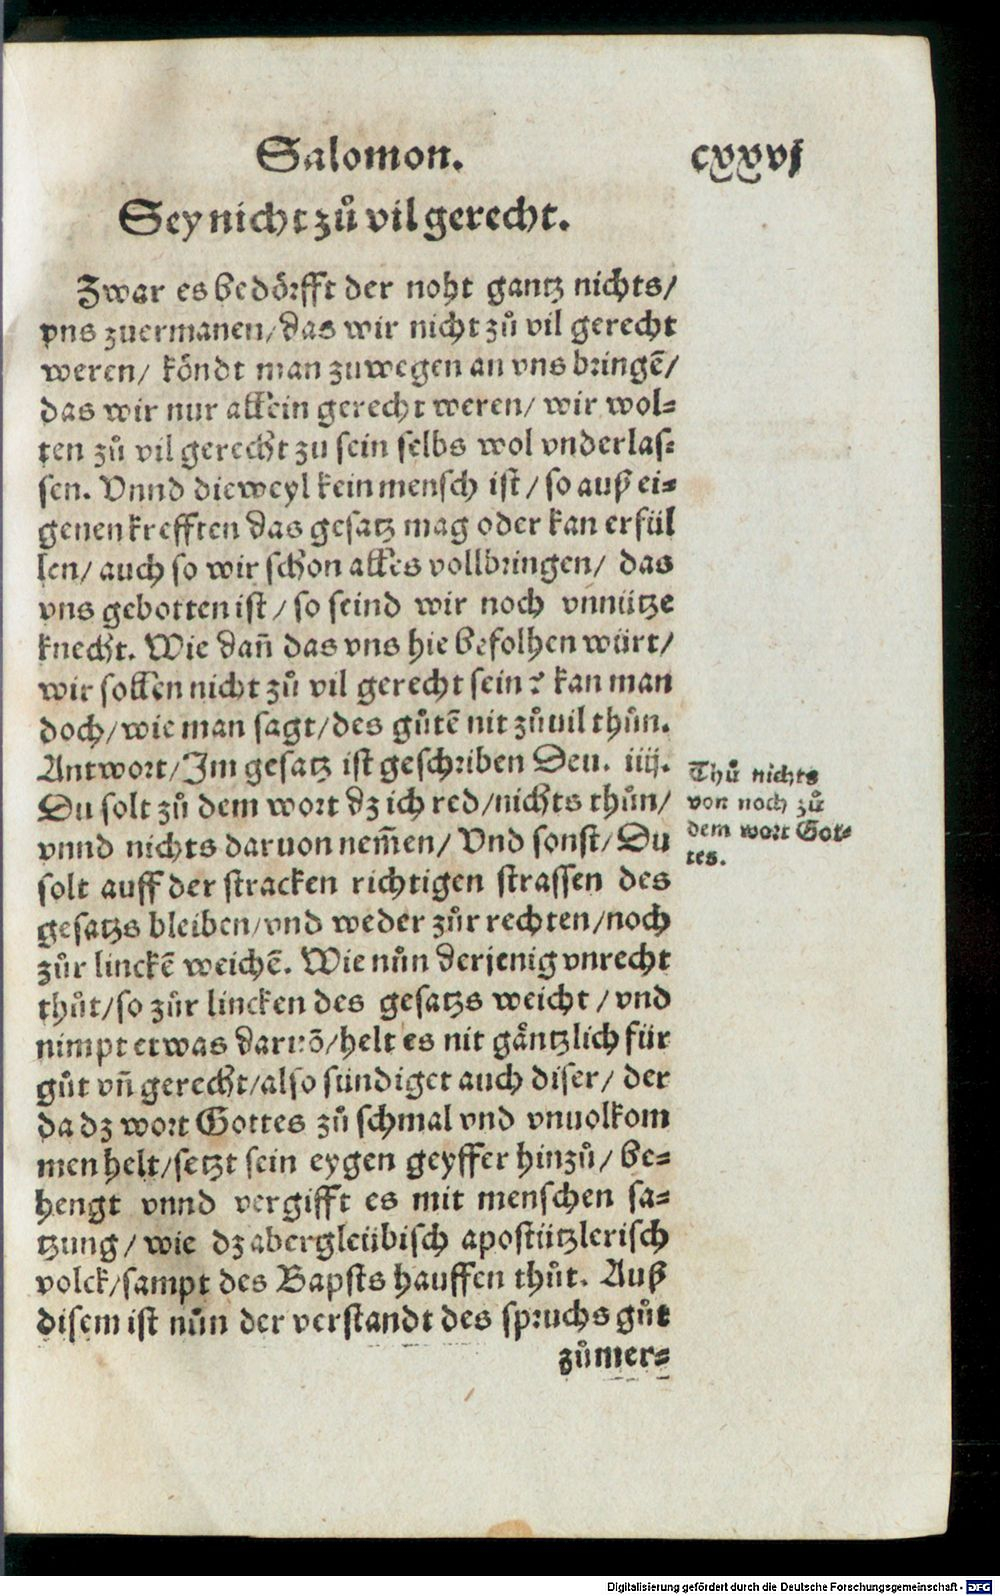 Salomon. cxxvj
Sey nicht zů vil gerecht.
Zwar es bedörfft der noht gantz nichts/
vns zuermanen/ das wir nicht zů vil gerecht
weren/ köndt man zuwegen an vns bringẽ/
das wir nur allein gerecht weren/ wir wol⸗
ten zů vil gerecht zu sein selbs wol vnderlas⸗
sen. Vnnd dieweyl kein mensch ist/ so auß ei⸗
genen krefften das gesatz mag oder kan erfül
len/ auch so wir schon alles vollbringen/ das
vns gebotten ist/ so seind wir noch vnnütze
knecht. Wie dañ das vns hie befolhen würt/
wir sollen nicht zů vil gerecht sein? kan man
doch/ wie man sagt/ des gůtẽ nit zůuil thůn.
Antwort/ Im gesatz ist geschriben Deu. iiij.
Du solt zů dem wort dz ich red/ nichts thůn/
vnnd nichts daruon nem̃en/ Vnd sonst/ Du
solt auff der stracken richtigen strassen des
gesatzs bleiben/ vnd weder zůr rechten/ noch
zůr linckẽ weichẽ. Wie nůn derjenig vnrecht
thůt/ so zůr lincken des gesatzs weicht/ vnd
nimpt etwas daruõ/ helt es nit gäntzlich für
gůt vñ gerecht/ also sündiget auch diser/ der
da dz wort Gottes zů schmal vnd vnuolkom
men helt/ setzt sein eygen geyffer hinzů/ be⸗
hengt vnnd vergifft es mit menschen sa⸗
tzung/ wie dz abergleübisch apostützlerisch
volck/ sampt des Bapsts hauffen thůt. Auß
disem ist nůn der verstandt des spruchs gůt
zůmer⸗
Thů nichts
von noch zů
dem wort Got⸗
tes.
Digitalisierung gefördert durch die Deutsche Forschungsgemeinschaft - DFG